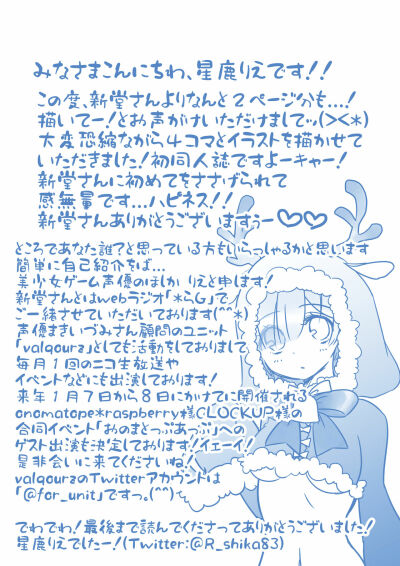 みなさまこんにちわ、星鹿りえです!!
この度、新堂さんよりなんと2ページ分も...!
描いてー!とお声がけいただけましてッ(><*)
大変恐縮ながら4コマとイラストを描かせて
いただきました!初同人誌ですよーキャー!
新堂さんに初めてをささげられて
感無量です...ハピネス!!
新堂さんありがとうございますぅー♡♡
ところであなた誰?と思っている方もいらっしゃるかと思います
簡単に自己紹介をば...
美少女ゲーム声優のほしか りえと申します!
新堂さんとはwebラジオ「*らG」で
ご一緒させていただいております(^^*)
声優まきいづみさん顧問のユニット
「valqourz」としても活動をしておりまして
毎月1回のニコ生放送や
イベントなどにも出演しております!
来年1月7日から8日にかけてに開催される
onomatope*raspberry様CLOCKUP様の
合同イベント「おのまとっぷあっぷ」への
ゲスト出演も決定しております!イェーイ!
是非会いに来てくださいね!
valqourzのTwitterアカウントは
「@for_unit」ですっ。(^^)
でわでわ!最後まで読んでくださってありがとうございました!
星鹿りえでしたー!(Twitter:@R_shika83)